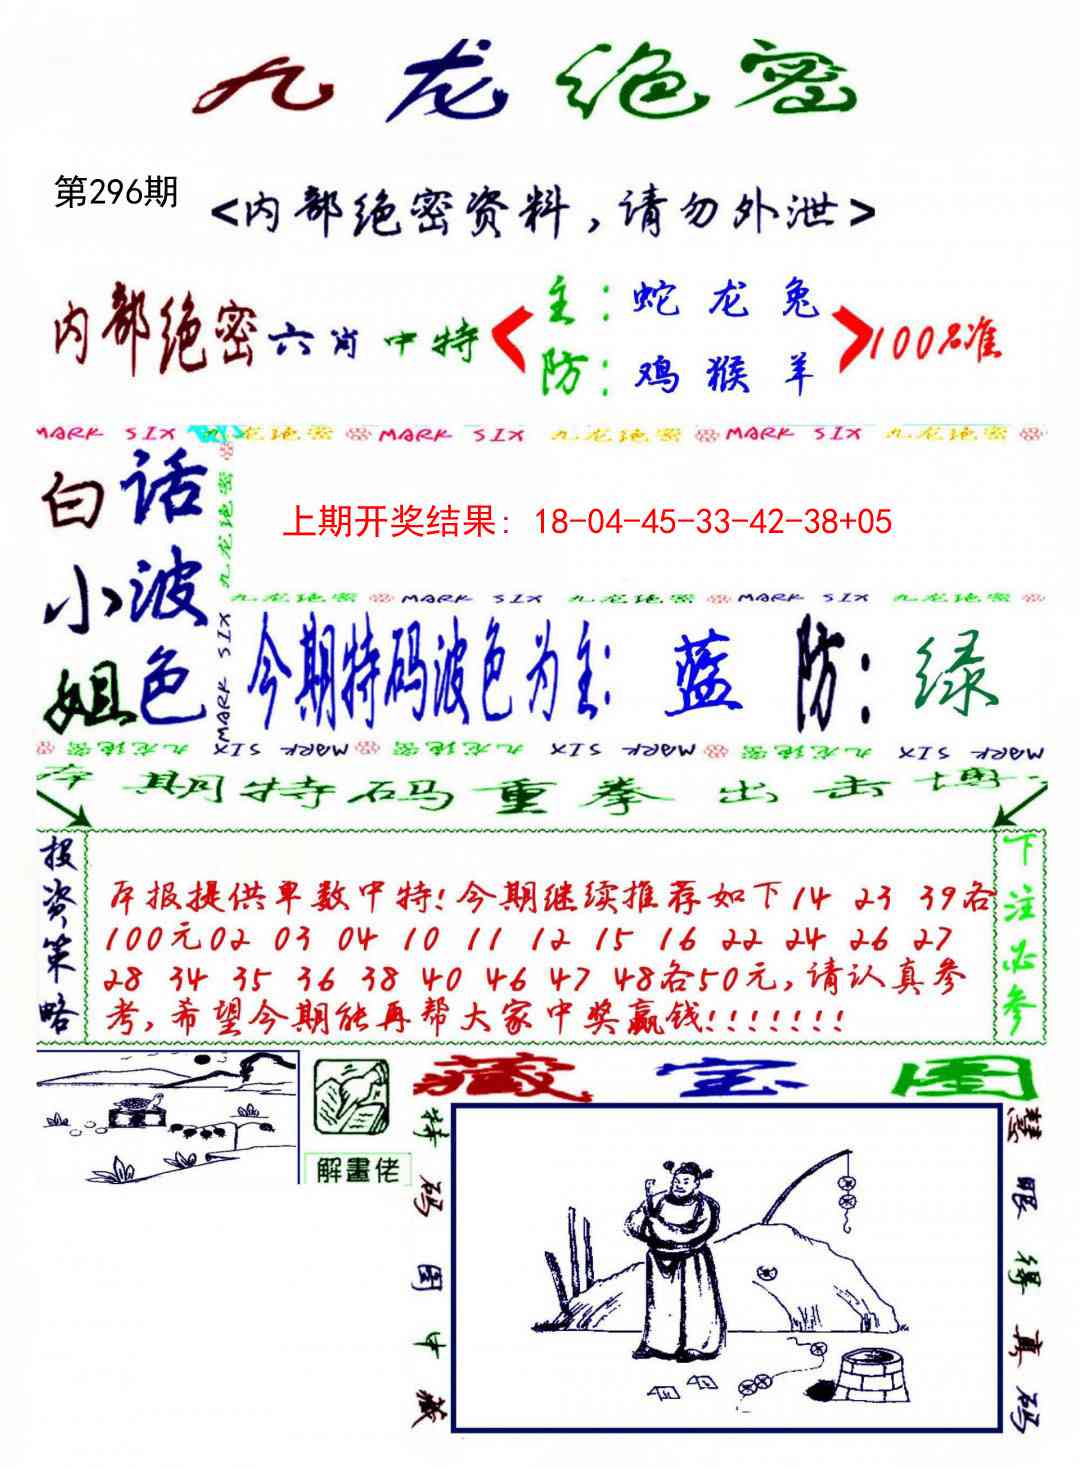 九龙绝密
第296期
<内部绝密资料,请勿外泄>
内部绝密六肖中特
主:蛇 龙 兔
防:鸡 猴 羊
100%准
MARK SIX 九龙绝密 MARK SIX 九龙绝密 MARK SIX 九龙绝密
白话小波姐色
九龙绝密
MARK SIX
上期开奖结果: 18-04-45-33-42-38+05
九龙绝密 MARK SIX 九龙绝密 MARK SIX 九龙绝密
今期特码波色为主: 蓝 防: 绿
九龙绝密 MARK SIX 九龙绝密 MARK SIX 九龙绝密 MARK SIX
本期特码重拳出击博
投资策略
本报提供单数中特!今期继续推荐如下14 23 39各
100元02 03 04 10 11 12 15 16 22 24 26 27
28 34 35 36 38 40 46 47 48各50元,请认真参
考,希望今期能再帮大家中奖赢钱!!!!!!!
下注必参
解畫佬
藏宝图
特码图中藏
慧眼得真码